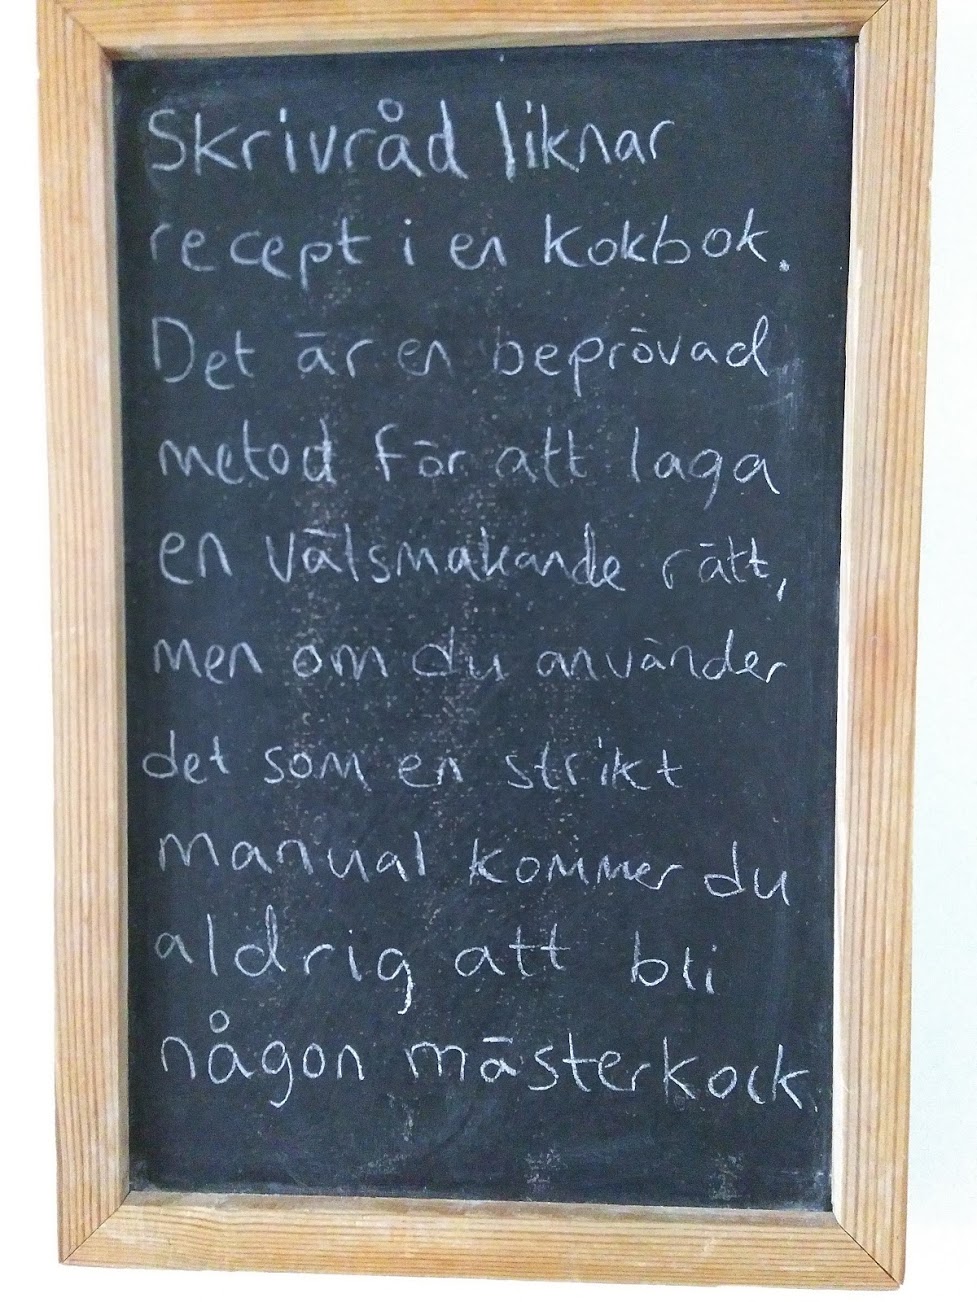 Skrivråd liknar
recept i en kokbok.
Det är en beprövad
metod för att laga
en välsmakande rätt,
men om du använder
det som en strikt
manual kommer du
aldrig att bli
någon mästerkock.